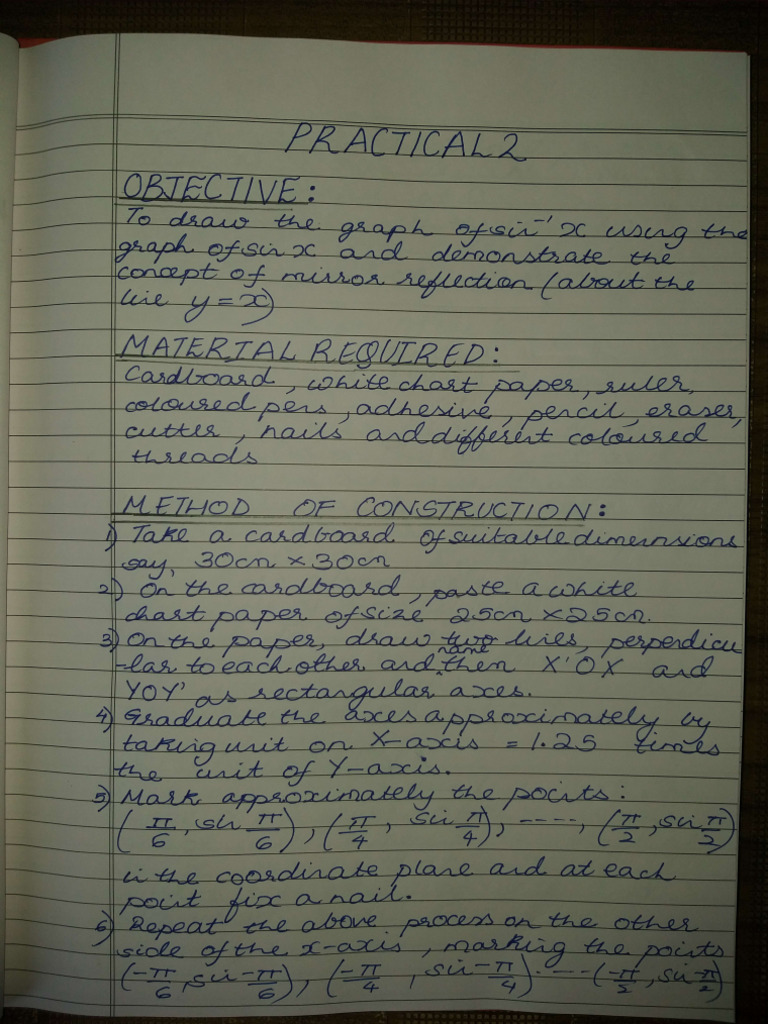 PRACTICAL 2
OBJECTIVE:
To draw the graph of sin⁻¹ x using the
graph of sin x and demonstrate the
concept of mirror reflection (about the
line y = x)
MATERIAL REQUIRED:
Cardboard, white chart paper, ruler,
coloured pens, adhesive, pencil, eraser,
cutter, nails and different coloured
threads
METHOD OF CONSTRUCTION:
1) Take a cardboard of suitable dimensions
say, 30cm × 30cm
2) On the cardboard, paste a white
chart paper of size 25cm × 25cm.
3) On the paper, draw two lines, perpendicu
-lar to each other and name them X'OX and
YOY' as rectangular axes.
4) Graduate the axes approximately by
taking unit on X-axis = 1.25 times
the unit of Y-axis.
5) Mark approximately the points:
(π/6, sin π/6), (π/4, sin π/4), ----, (π/2, sin π/2)
in the coordinate plane and at each
point fix a nail.
6) Repeat the above process on the other
side of the x-axis, marking the points
(-π/6, sin -π/6), (-π/4, sin -π/4) ---- (-π/2, sin -π/2)